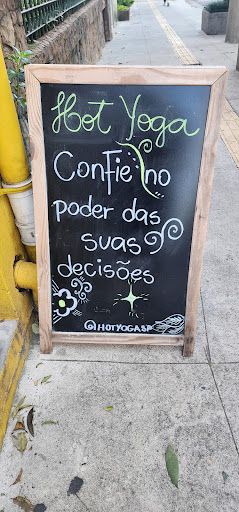 Hot Yoga
Confie no
poder das
suas
decisões
@HOTYOGASP